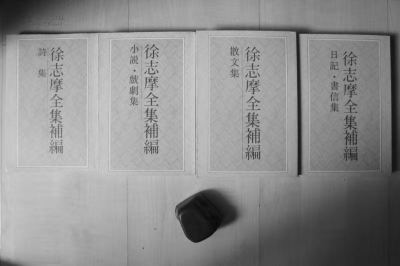 徐志摩全集補編
詩集
徐志摩全集補編
小説・戲劇集
徐志摩全集補編
散文集
徐志摩全集補編
日記・書信集